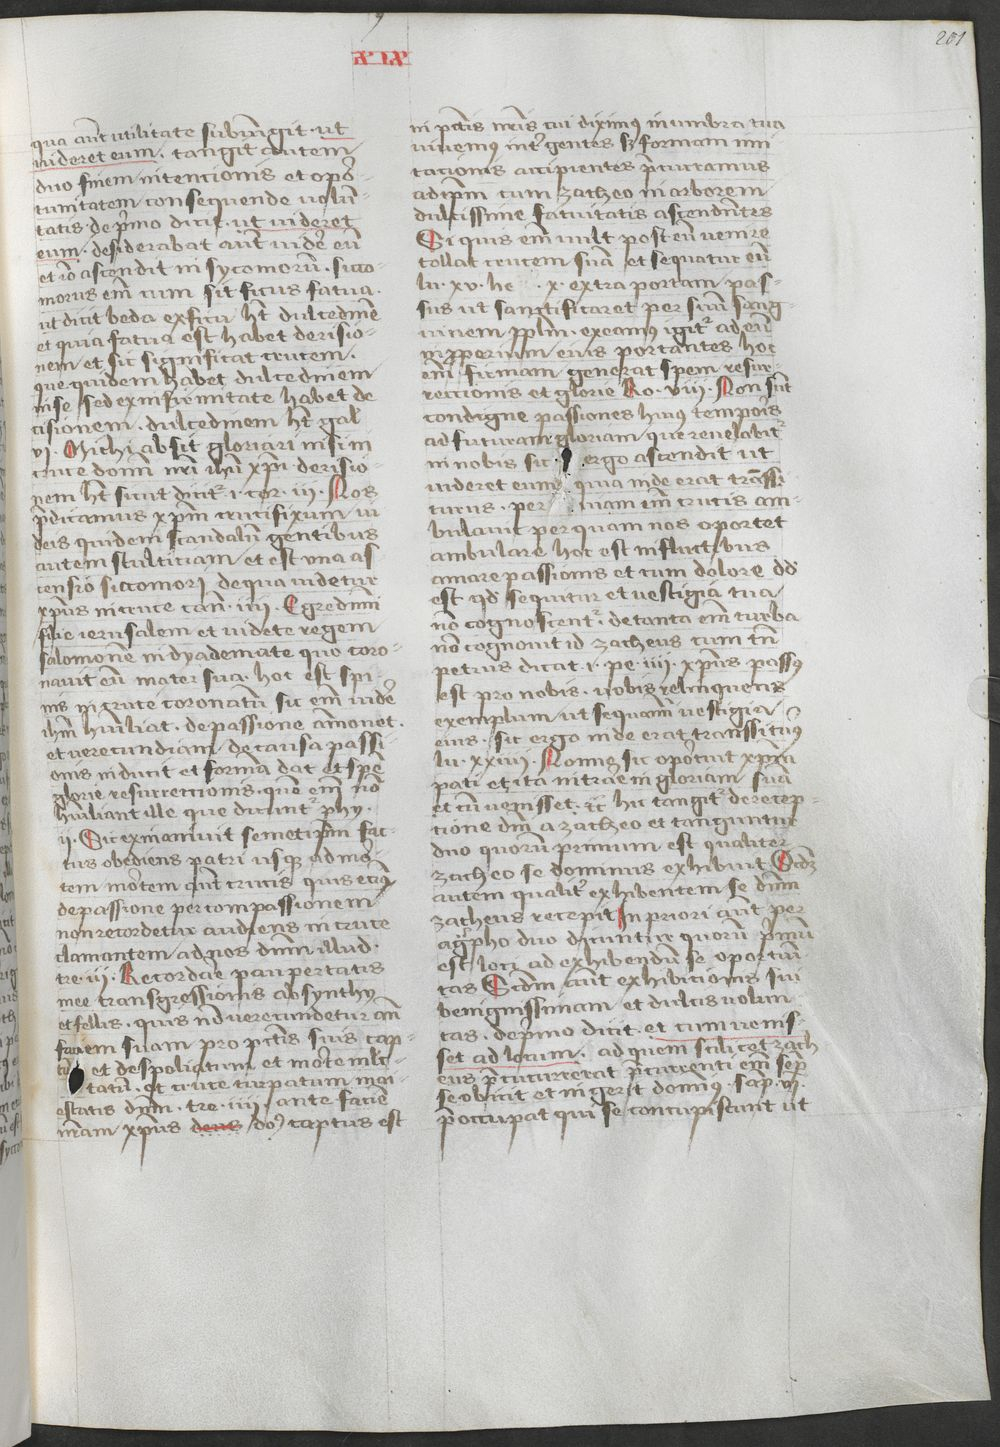 201
xix
qua aūt utilitate subiūngit · ut
uideret eum · tangit autem
duo finem intencionis et opor̄
tunitatem consequende uolun̄
tatis · de p̄mo dicit · ut uideret
eum · desiderabat aūt uidēr eū
et iō ascendit in sycomorū · sicco
morus em̄ cum sit ficus fatua ·
ut dicit beda ex ficu h̄t dulcedinē
et quia fatua est habet derisio
nem et sic significat crucem ·
que quidem habet dulcedinem
in se sed ex infirmitate habet de
risionem · dulcedinem h̄t gal̄
vi · Michi absit gloriari nisi in
cruce domi nr̄i ihū xp̄i derisio
nem h̄t sicut dicit̉ 1 · cor · iii · Nos
p̄dicamus xp̄m crucifixum iu
deis quidem scandalū gentibus
autem stulticiam et est una as
censio siccomori de qua uidetur
xp̄us in cruce can̄ · iiii · Egredimi
filie ierusalem et uidete regem
salomonē in dyademate quo coro
nauit eū mater sua · hoc est spi
nis in cruce coronatū sic em̄ uidēr
ihm̄ hūiliat · de passione āmonet ·
et uerecundiam de causa passi
onis inducit et formā dat et spē
glorie resurrectionis · quē em̄ nō
hūiliant ille que dicunt̉ phy ·
ii · Sic exinaniuit semetip̄m fac
tus obediens patri usq̨ ad mor̄
tem mortem aūt crucis quis eciā
de passione per compassionem
non recordetur audiens in cruce
clamantem ad nos dm̄m illud ·
tre · iii · Recordare paupertatis
mee transgressionis absynthy
et fellis · quis nō uerecundetur an̄
faciem suam pro pctīs suis cap
tū et despoliatum et morte mlc
tatū · et cruce turpatum mai
estatis dm̄m · tre · iiii · ante facie
nr̄am xp̄us deus do᷒ captus est
in pctīs nr̄is cui diximus in umbra tua
uiuemus int̉ gentes hᷤ formam imi
tacionis accipientes p̄curramus
ad ip̄m cum zacheo in arborem
dulcissime fatuitatis ascendentes
Si quis em̄ uult post eū uenire
tollat crucem suā et sequatur eū
lu · xv · he · x · extra portam pas
sus ut sanctificaret per suū sang
uinem pp̄lm · exeamus igit̉ ad eū
inpperium eius portantes hoc
em̄ firmam generat spem resur
rectionis et glorie Ro · viii · Non sūt
condigne passiones huius temporis
ad futuram gloriam que reuelabit̉
in nobis sic ergo ascendit ut
uideret eum quia inde erat trāssi
turus · per uiam em̄ crucis am
bulauit per quam nos oportet
ambulare hoc est in fluctibus
amare passionis et cum dolore dd̄
est q̄d sequitur et uestigia tua
nō cognoscent̉ · de tanta em̄ turba
nō cognouit id zacheus cum tn̄
petrus dicat · 1 · pe · iiii · xp̄us passus
est pro nobis · uobis relinquens
exemplum ut sequamī uestigia
eius · sic ergo inde erat transsiturus
lu · xxiiii · Nonne sic oportuit xp̄m
pati et ita intrāe in gloriam suā
et cū uenisset · ⁊c hic tangit̉ de recep
tione dm̄i a zacheo et tanguntur
duo quorū primum est qualiter
zacheo se dominus exhibuit Scdm̄
autem qualit̉ exhibentem se dm̄m
zacheus recepit In priori aūt per
agrpho duo dicuntur quorū p̄mū
est loci ad exhibendū se oportūi
tas Scdm̄ aūt exhibitionis sui
benignissimam et dulcis uolun
tas · de p̄mo dicit · et cum uenis
set ad locum · ad quem scilicet zach
eus p̄cucurrerat p̄currenti em̄ semp̄
se obicit et ingerit dominus · sap · vi ·
p̄occupat qui se concupiscunt ut